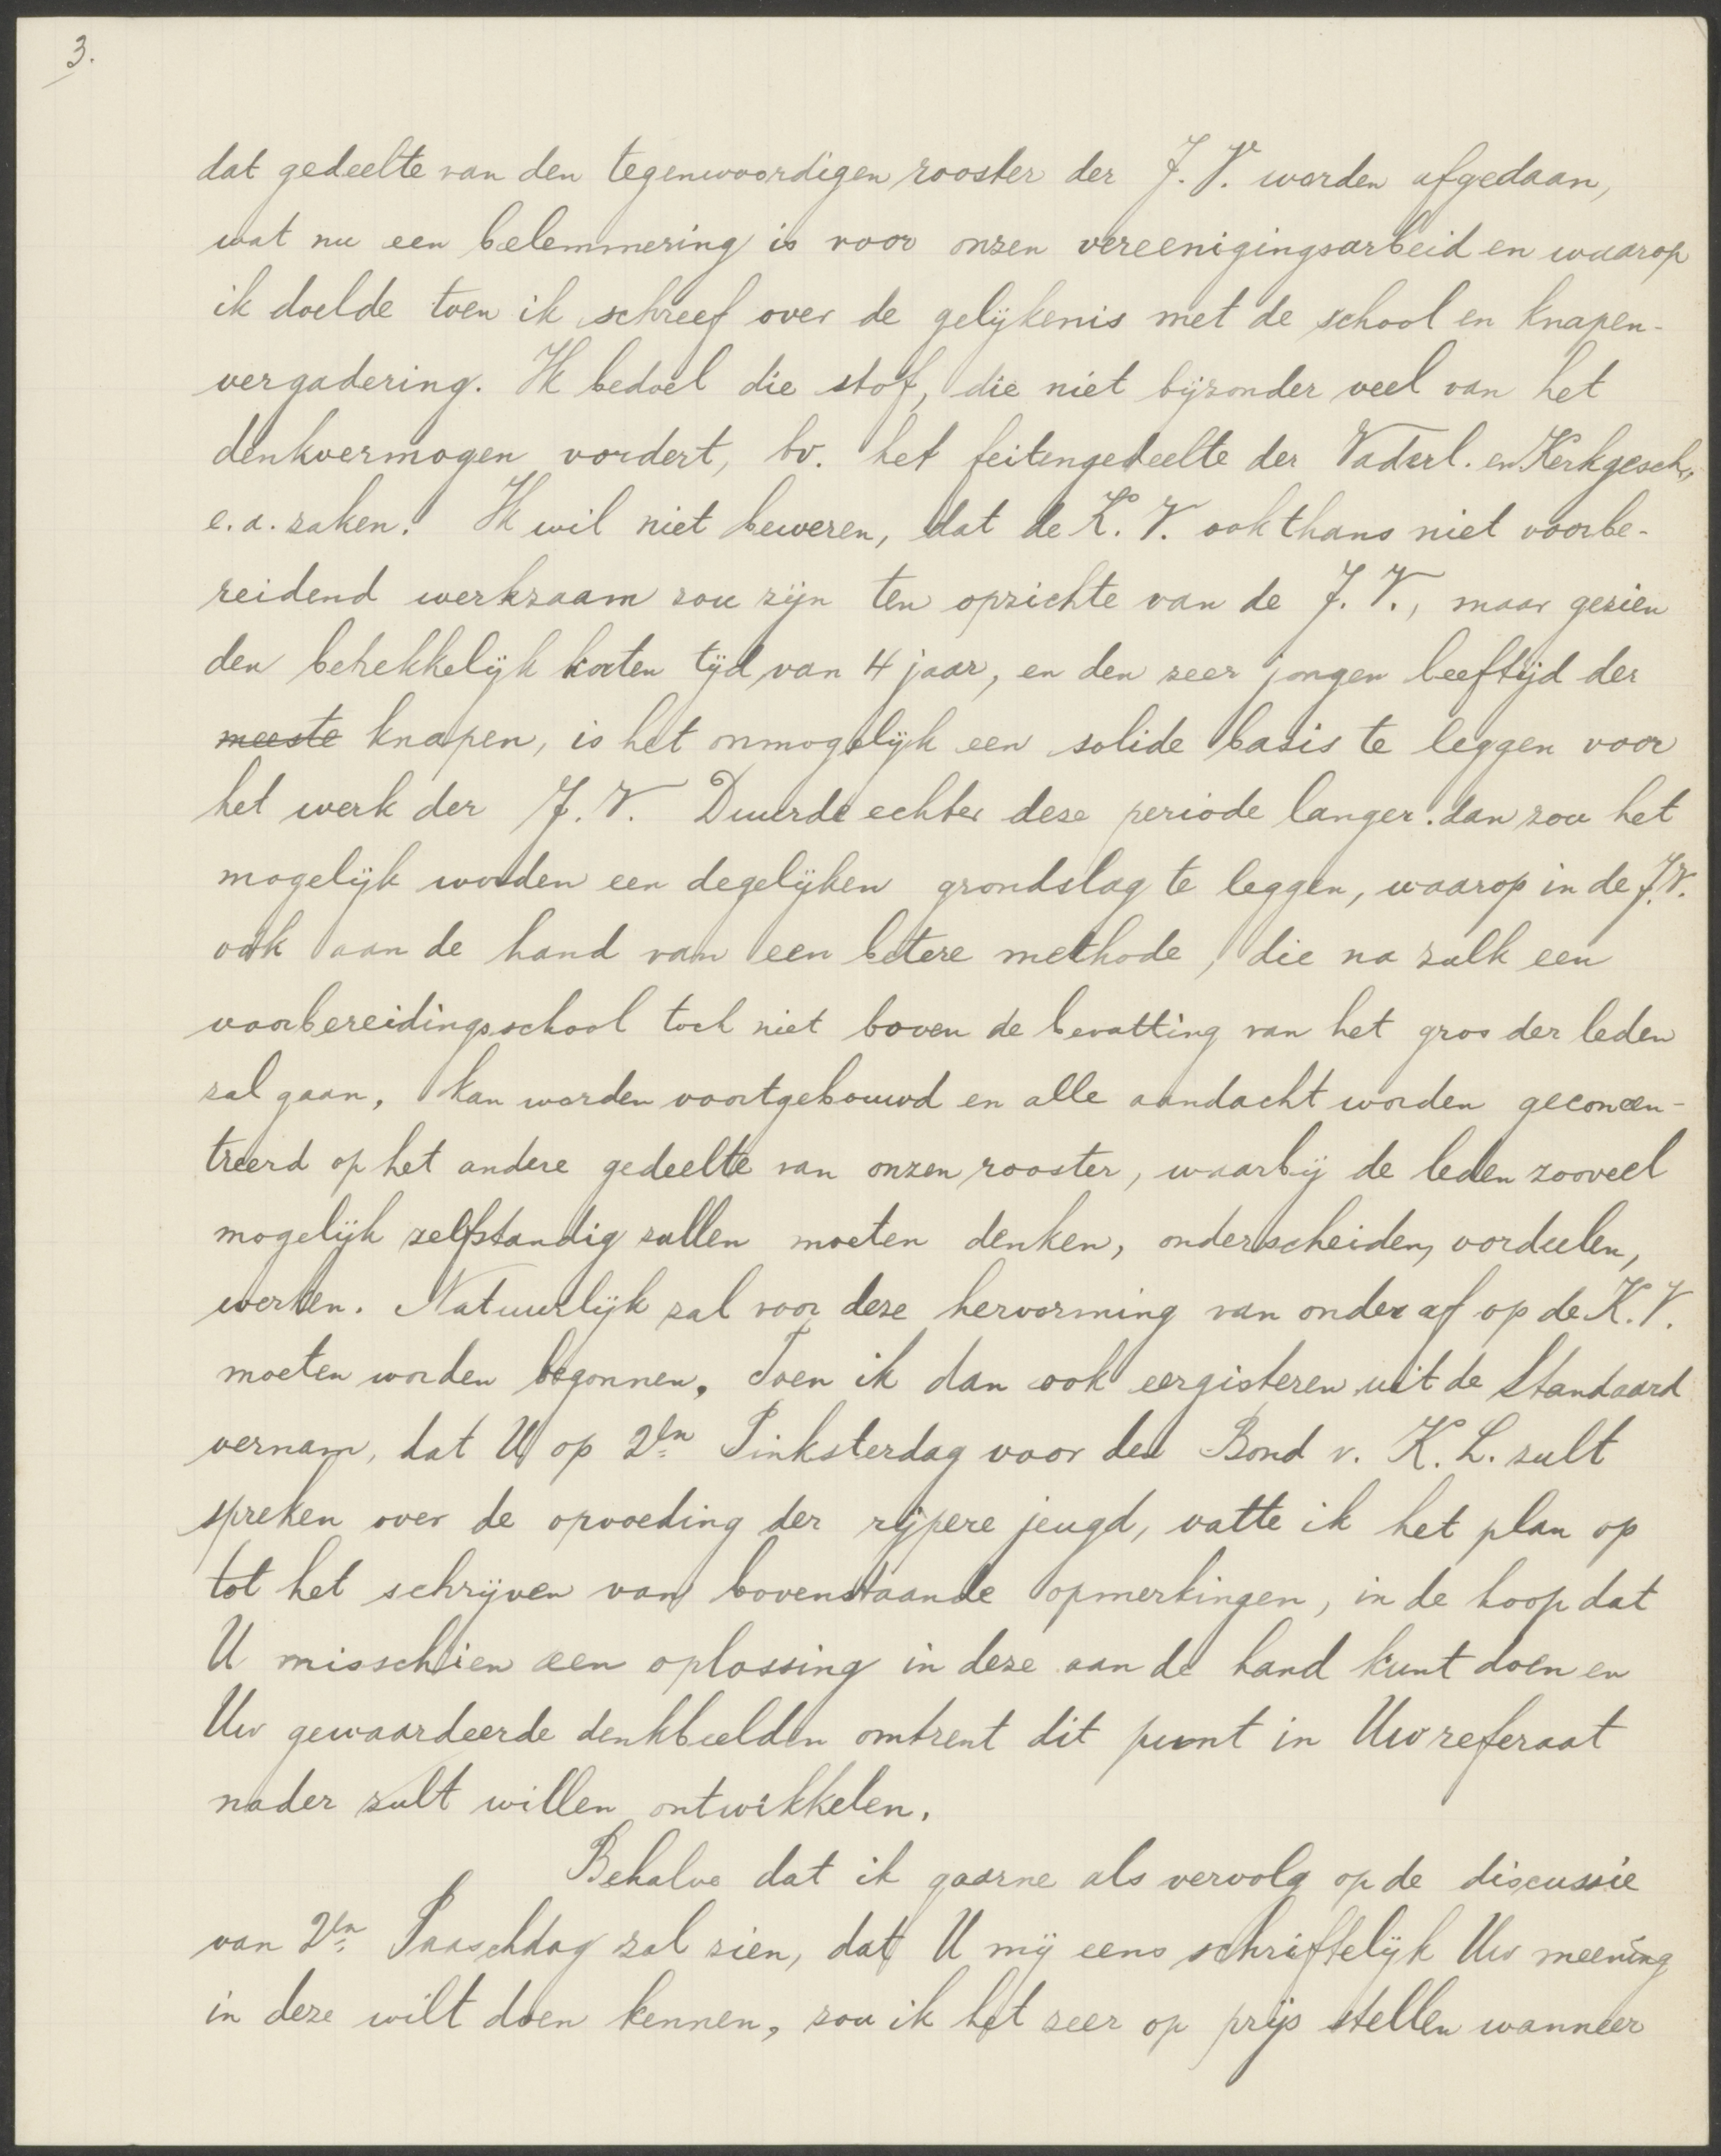 3.
dat gedeelte van den tegenwoordigen rooster der J. V. worden afgedaan,
wat nu een belemmering is voor onzen vereenigingsarbeid en waarop
ik doelde toen ik schreef over de gelijkenis met de school en knapen-
vergadering. Ik bedoel die stof, die niet bijzonder veel van het
denkvermogen vordert, bv. het feitengedeelte der Vaderl. en Kerkgesch.,
e. a. zaken. Ik wil niet beweren, dat de K. V. ook thans niet voorbe-
reidend werkzaam zou zijn ten opzichte van de J. V., maar gezien
den betrekkelijk korten tijd van 4 jaar, en den zeer jongen leeftijd der
meeste knapen, is het onmogelijk een solide basis te leggen voor
het werk der J. V. Duurde echter deze periode langer. dan zou het
mogelijk worden een degelijken grondslag te leggen, waarop in de J.V.
ook aan de hand van een betere methode, die na zulk een
voorbereidingsschool toch niet boven de bevatting van het gros der leden
zal gaan, kan worden voortgebouwd en alle aandacht worden geconcen-
treerd op het andere gedeelte van onzen rooster, waarbij de leden zooveel
mogelijk zelfstandig zullen moeten denken, onderscheiden, oordeelen,
werken. Natuurlijk zal voor deze hervorming van onder af op de K. V.
moeten worden begonnen. Toen ik dan ook eergisteren uit de Standaard
vernam, dat U op 2en Pinksterdag voor den Bond v. K. L. zult
spreken over de opvoeding der rijpere jeugd, vatte ik het plan op
tot het schrijven van bovenstaande opmerkingen, in de hoop dat
U misschien een oplossing in deze aan de hand kunt doen en
Uw gewaardeerde denkbeelden omtrent dit punt in Uw referaat
nader zult willen ontwikkelen.
Behalve dat ik gaarne als vervolg op de discussie
van 2en Paaschdag zal zien, dat U mij eens schriftelijk Uw meening
in deze wilt doen kennen, zou ik het zeer op prijs stellen wanneer